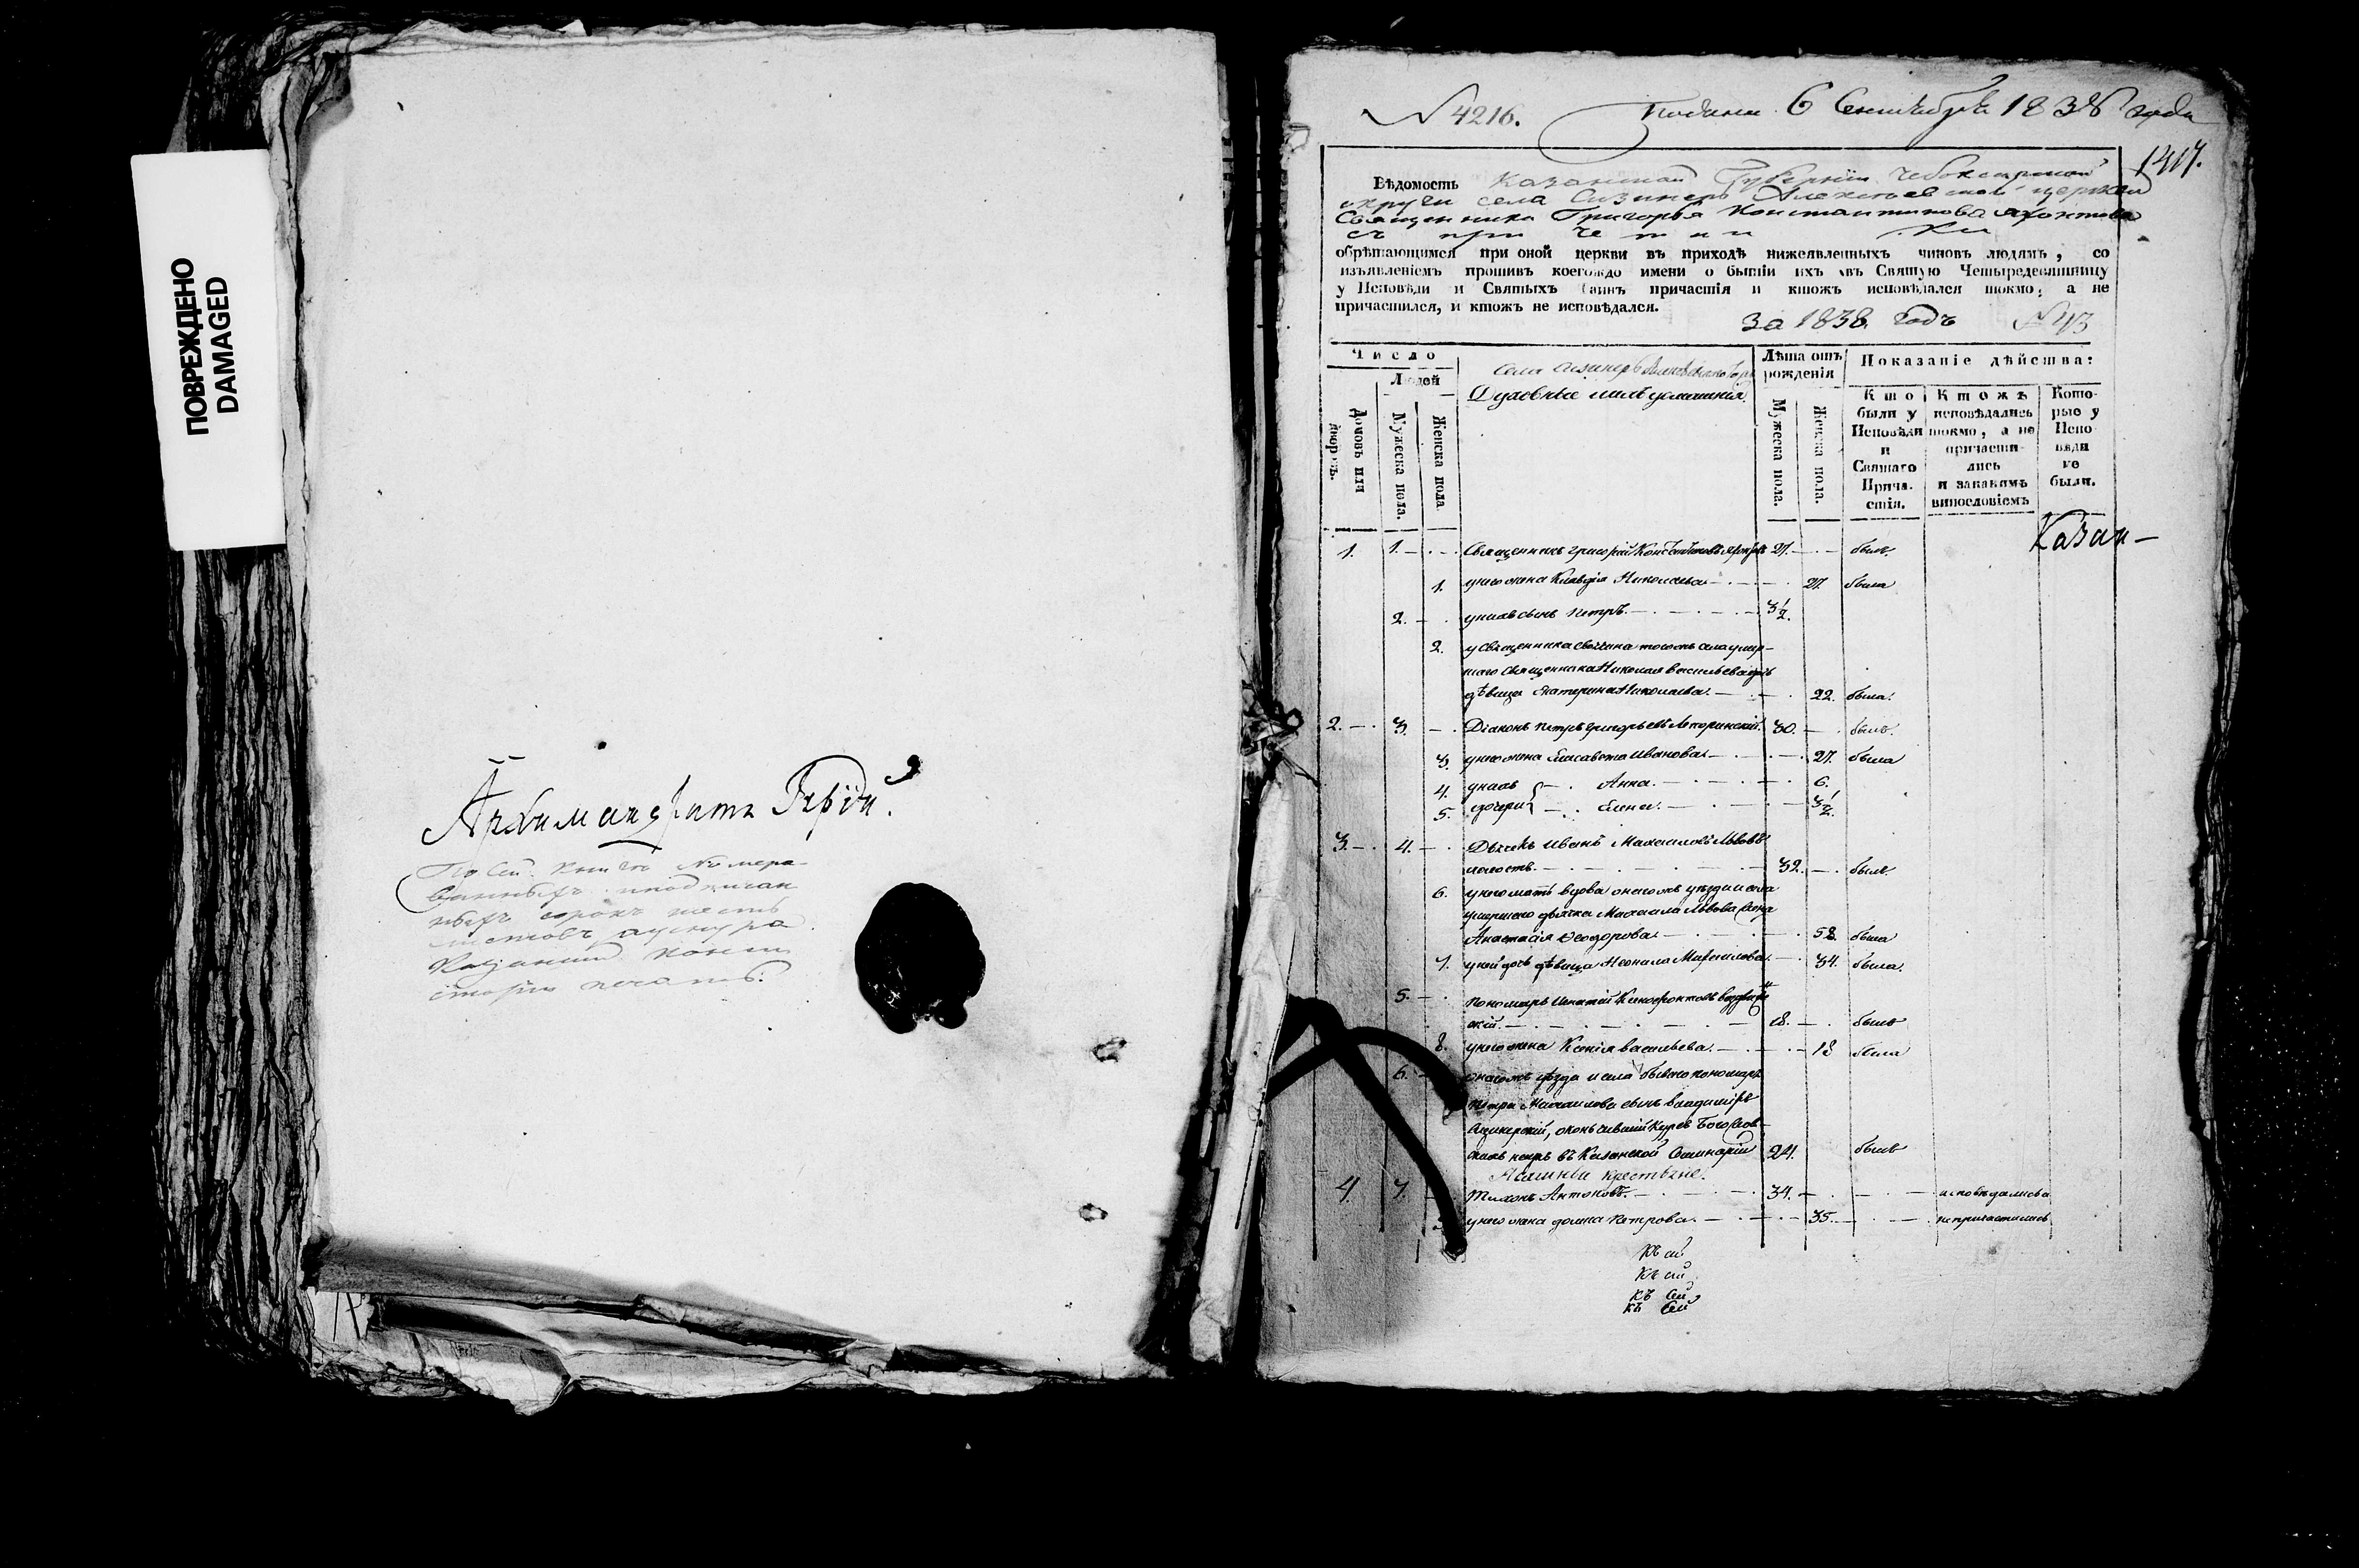 ПОВРЕЖДЕНО
DAMAGED
Архимандритъ Гурій.
По сей книгѣ нумера-
ванныхъ
ныхъ сорокъ шесть
листовъ
Казанской конси
сторіи печать.
№ 4216. Подана 6 Сентября 1838 года
1417.
Вѣдомость Казанской Губерніи Чебоксарской
округи села Сизинеръ Алексѣевской церкви
Священника Григорья Константинова Яхонтова
съ причетники
обрѣтающимся при оной церкви въ приходѣ нижеявленныхъ чиновъ людямъ, со
изъявленіемъ противъ коегождо имени о бытіи ихъ въ Святую Четыредесятницу
у Исповѣди и Святыхъ Таинъ причастія и ктожъ исповѣдался токмо, а не
причастился, и ктожъ не исповѣдался.
за 1838. Годъ №
Число
Людей
Домовъ или дворовъ.
Мужеска пола.
Женска пола.
Села Сизинеръ
Духовные
Лѣта отъ рожденія
Мужеска пола.
Женска пола.
Показаніе дѣйства:
Кто были у Исповѣди и Святаго Прича- стія.
Ктожъ исповѣдались токмо, а не причасти- лись и закакимъ винословіемъ
Кото- рые у Испо- вѣди не были.
Казан-
1. 1. Священникъ Григорій Константиновъ Яхонтовъ 27. былъ.
1. у него жена Клавдія Николаева 27. была
2. у нихъ сынъ Петръ. 3 1/2.
2. у Священника своячина тогожъ села умер-
шаго Священника Николая Васильева дочь
дѣвица Екатерина Николаева. 22. была.
2. 3. Діаконъ Петръ Григорьевъ 30. былъ.
3. у него жена Елисавета Иванова. 27. была
4. у нихъ Анна. 6.
5. дочери Елена. 3 1/2.
3. 4. Дьячекъ Иванъ Михаиловъ Львовъ
холостъ. 32. былъ.
6. у него мать вдова онагожъ уѣзда и села
умершаго дьячка Михаила Львова жена
Анастасія Ѳеодорова. 58. была
7. у ней дочь дѣвица Неонила Михаилова. 34. была.
5. Пономарь Игнатій Ксенофонтовъ Воздвижен
скій. 18. былъ
8. у него жена Ксенія Васильева. 18 была
6. онагожъ уѣзда и села бывшаго пономаря
Петра Михаилова сынъ Владимиръ
Сизинерскій, окончившій Курсъ Богослов-
скихъ наукъ въ Казанской Семинаріи 24. былъ
крестьяне.
4. 7. Тихонъ Антоновъ. 34. исповѣдались а
9. у него жена Домна Петрова. 35. не причастились
Къ сей
Къ сей
Къ сей
Къ сей